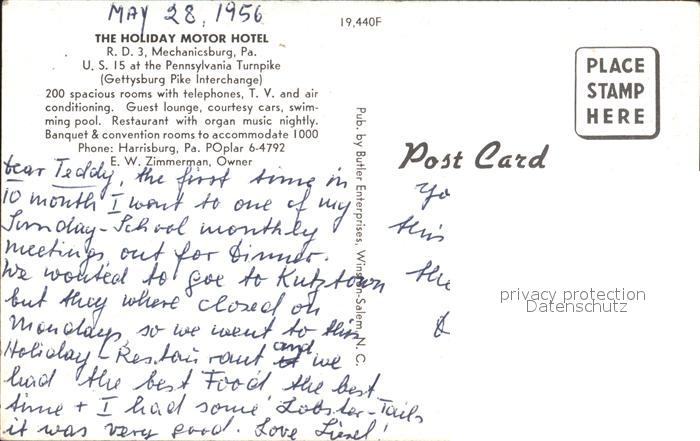 MAY 28, 1956
19,440F
THE HOLIDAY MOTOR HOTEL
R. D. 3, Mechanicsburg, Pa.
U. S. 15 at the Pennsylvania Turnpike
(Gettysburg Pike Interchange)
200 spacious rooms with telephones, T. V. and air
conditioning. Guest lounge, courtesy cars, swim-
ming pool. Restaurant with organ music nightly.
Banquet & convention rooms to accommodate 1000
Phone: Harrisburg, Pa. POplar 6-4792
E. W. Zimmerman, Owner
Dear Teddy, the first time in
10 month I went to one of my
Sunday-School monthly
meetings, out for Dinner.
We wanted to goe to Kutztown
but they where closed on
Mondays, so we went to this
Holiday-Restaurant and we
had the best Food, the best
time + I had some Lobster-Tails
it was very good. Love Liesel!
Pub. by Butler Enterprises, Winston-Salem, N. C.
PLACE
STAMP
HERE
Post Card
Yo
this
the
privacy protection
Datenschutz